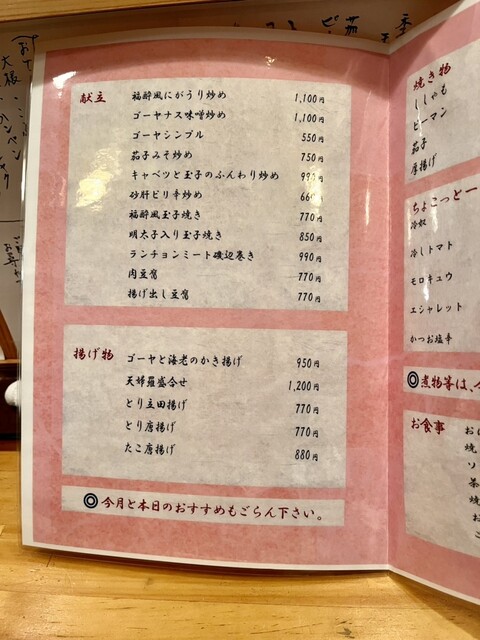 献立
福酔風にがうり炒め 1,100円
ゴーヤナス味噌炒め 1,100円
ゴーヤシンプル 550円
茄子みそ炒め 750円
キャベツと玉子のふんわり炒め 990円
砂肝ピリ辛炒め 660円
福酔風玉子焼き 770円
明太子入り玉子焼き 850円
ランチョンミート磯辺巻き 990円
肉豆腐 770円
揚げ出し豆腐 770円
揚げ物
ゴーヤと海老のかき揚げ 950円
天婦羅盛合せ 1,200円
とり立田揚げ 770円
とり唐揚げ 770円
たこ唐揚げ 880円
◎今月と本日のおすすめもごらん下さい。
焼き物
ししゃも
ピーマン
茄子
厚揚げ
ちょこっとー
冷奴
冷しトマト
モロキュウ
エシャレット
かつお塩辛
◎煮物等は、
お食事